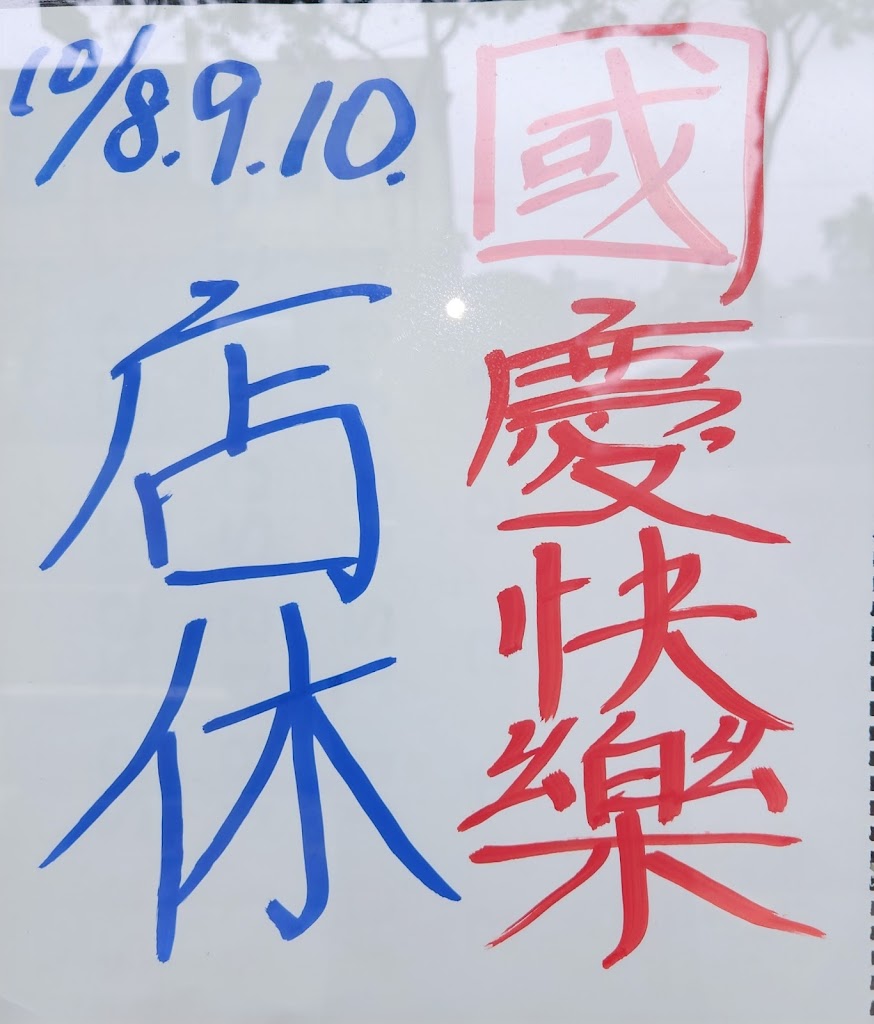 國慶快樂
10/8.9.10.
店休